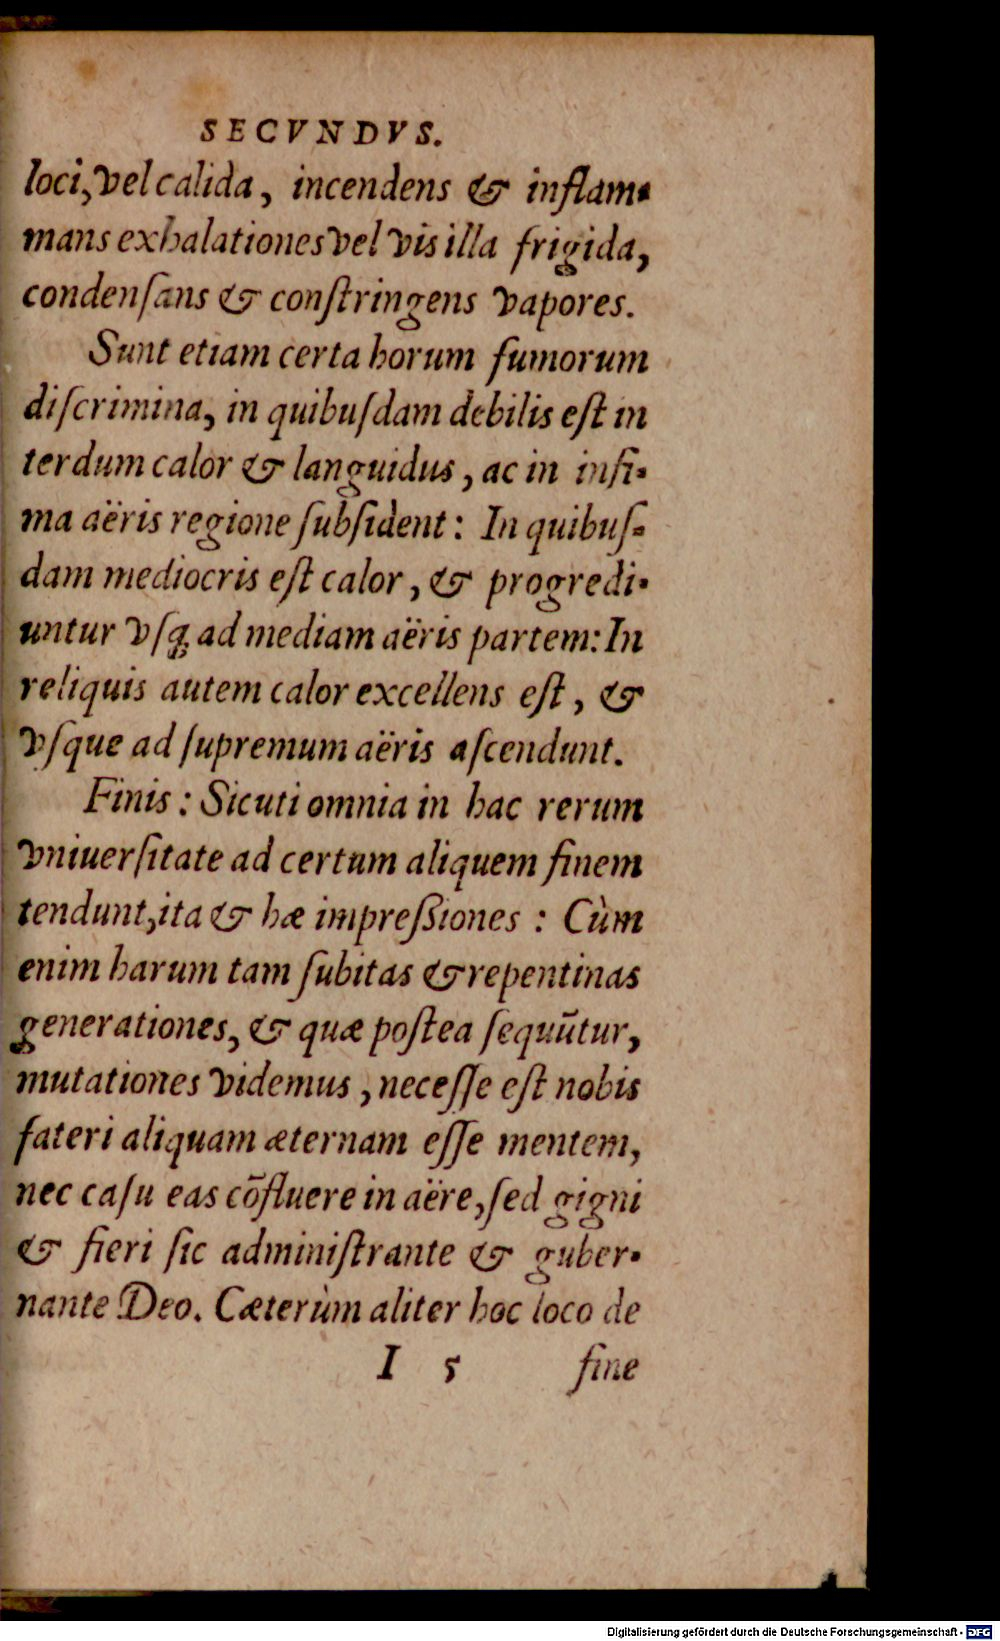 SECVNDVS.
loci, vel calida, incendens & inflam-
mans exhalationes vel vis illa frigida,
condenſans & conſtringens vapores.
Sunt etiam certa horum fumorum
diſcrimina, in quibuſdam debilis eſt in
terdum calor & languidus, ac in infi-
ma aëris regione ſubſident: In quibuſ-
dam mediocris eſt calor, & progredi-
untur vſq; ad mediam aëris partem: In
reliquis autem calor excellens eſt, &
vſque ad ſupremum aëris aſcendunt.
Finis: Sicuti omnia in hac rerum
vniuerſitate ad certum aliquem finem
tendunt, ita & hæ impreßiones: Cùm
enim harum tam ſubitas & repentinas
generationes, & quæ poſtea ſequūtur,
mutationes videmus, neceſſe eſt nobis
fateri aliquam æternam eſſe mentem,
nec caſu eas cōfluere in aëre, ſed gigni
& fieri ſic adminiſtrante & guber-
nante Deo. Cæterùm aliter hoc loco de
I 5 fine
Digitalisierung gefördert durch die Deutsche Forschungsgemeinschaft - DFG